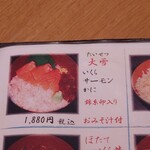 たいせつ
大雪
いくら
サーモン
かに
錦糸卵入り
1,880円 税込
おみそ汁付
ほたて